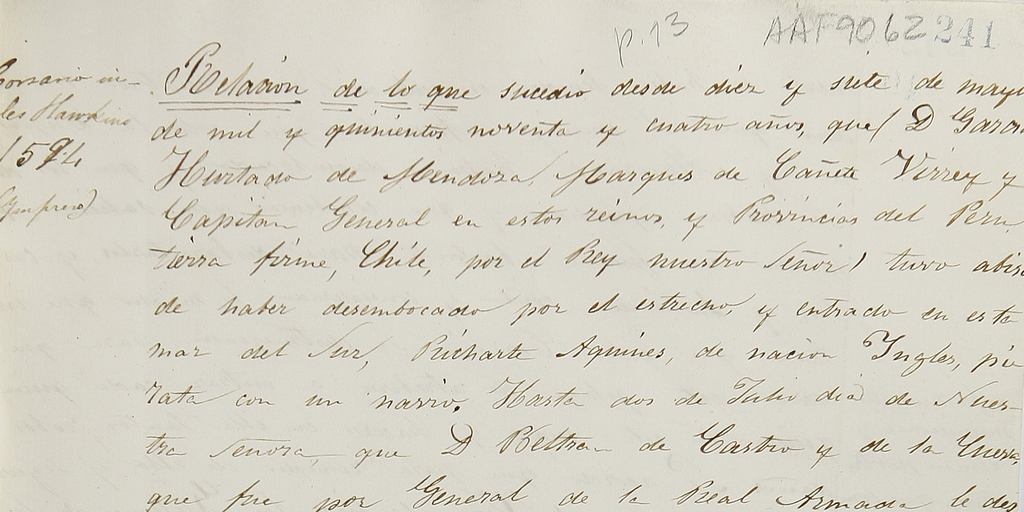 p. 13
AAF9062 241
Corsario in-
les Hawkins
1594
(Impreso)
Relacion de lo que sucedio desde diez y siete de mayo
de mil y quinientos noventa y cuatro años, que (D Garcia
Hurtado de Mendoza, Marques de Cañete Virrey y
Capitan General en estos reinos, y Provincias del Peru
tierra firme, Chile, por el Rey nuestro Señor) tuvo abiso
de haber desembocado por el estrecho, y entrado en esta
mar del Sur, Richarte Aquines, de nacion Yngles, pi-
rata con un navio. Hasta dos de Julio dia de Nues-
tra Señora, que D Beltran de Castro y de la Cueva,
que fue por General de la Real Armada le des